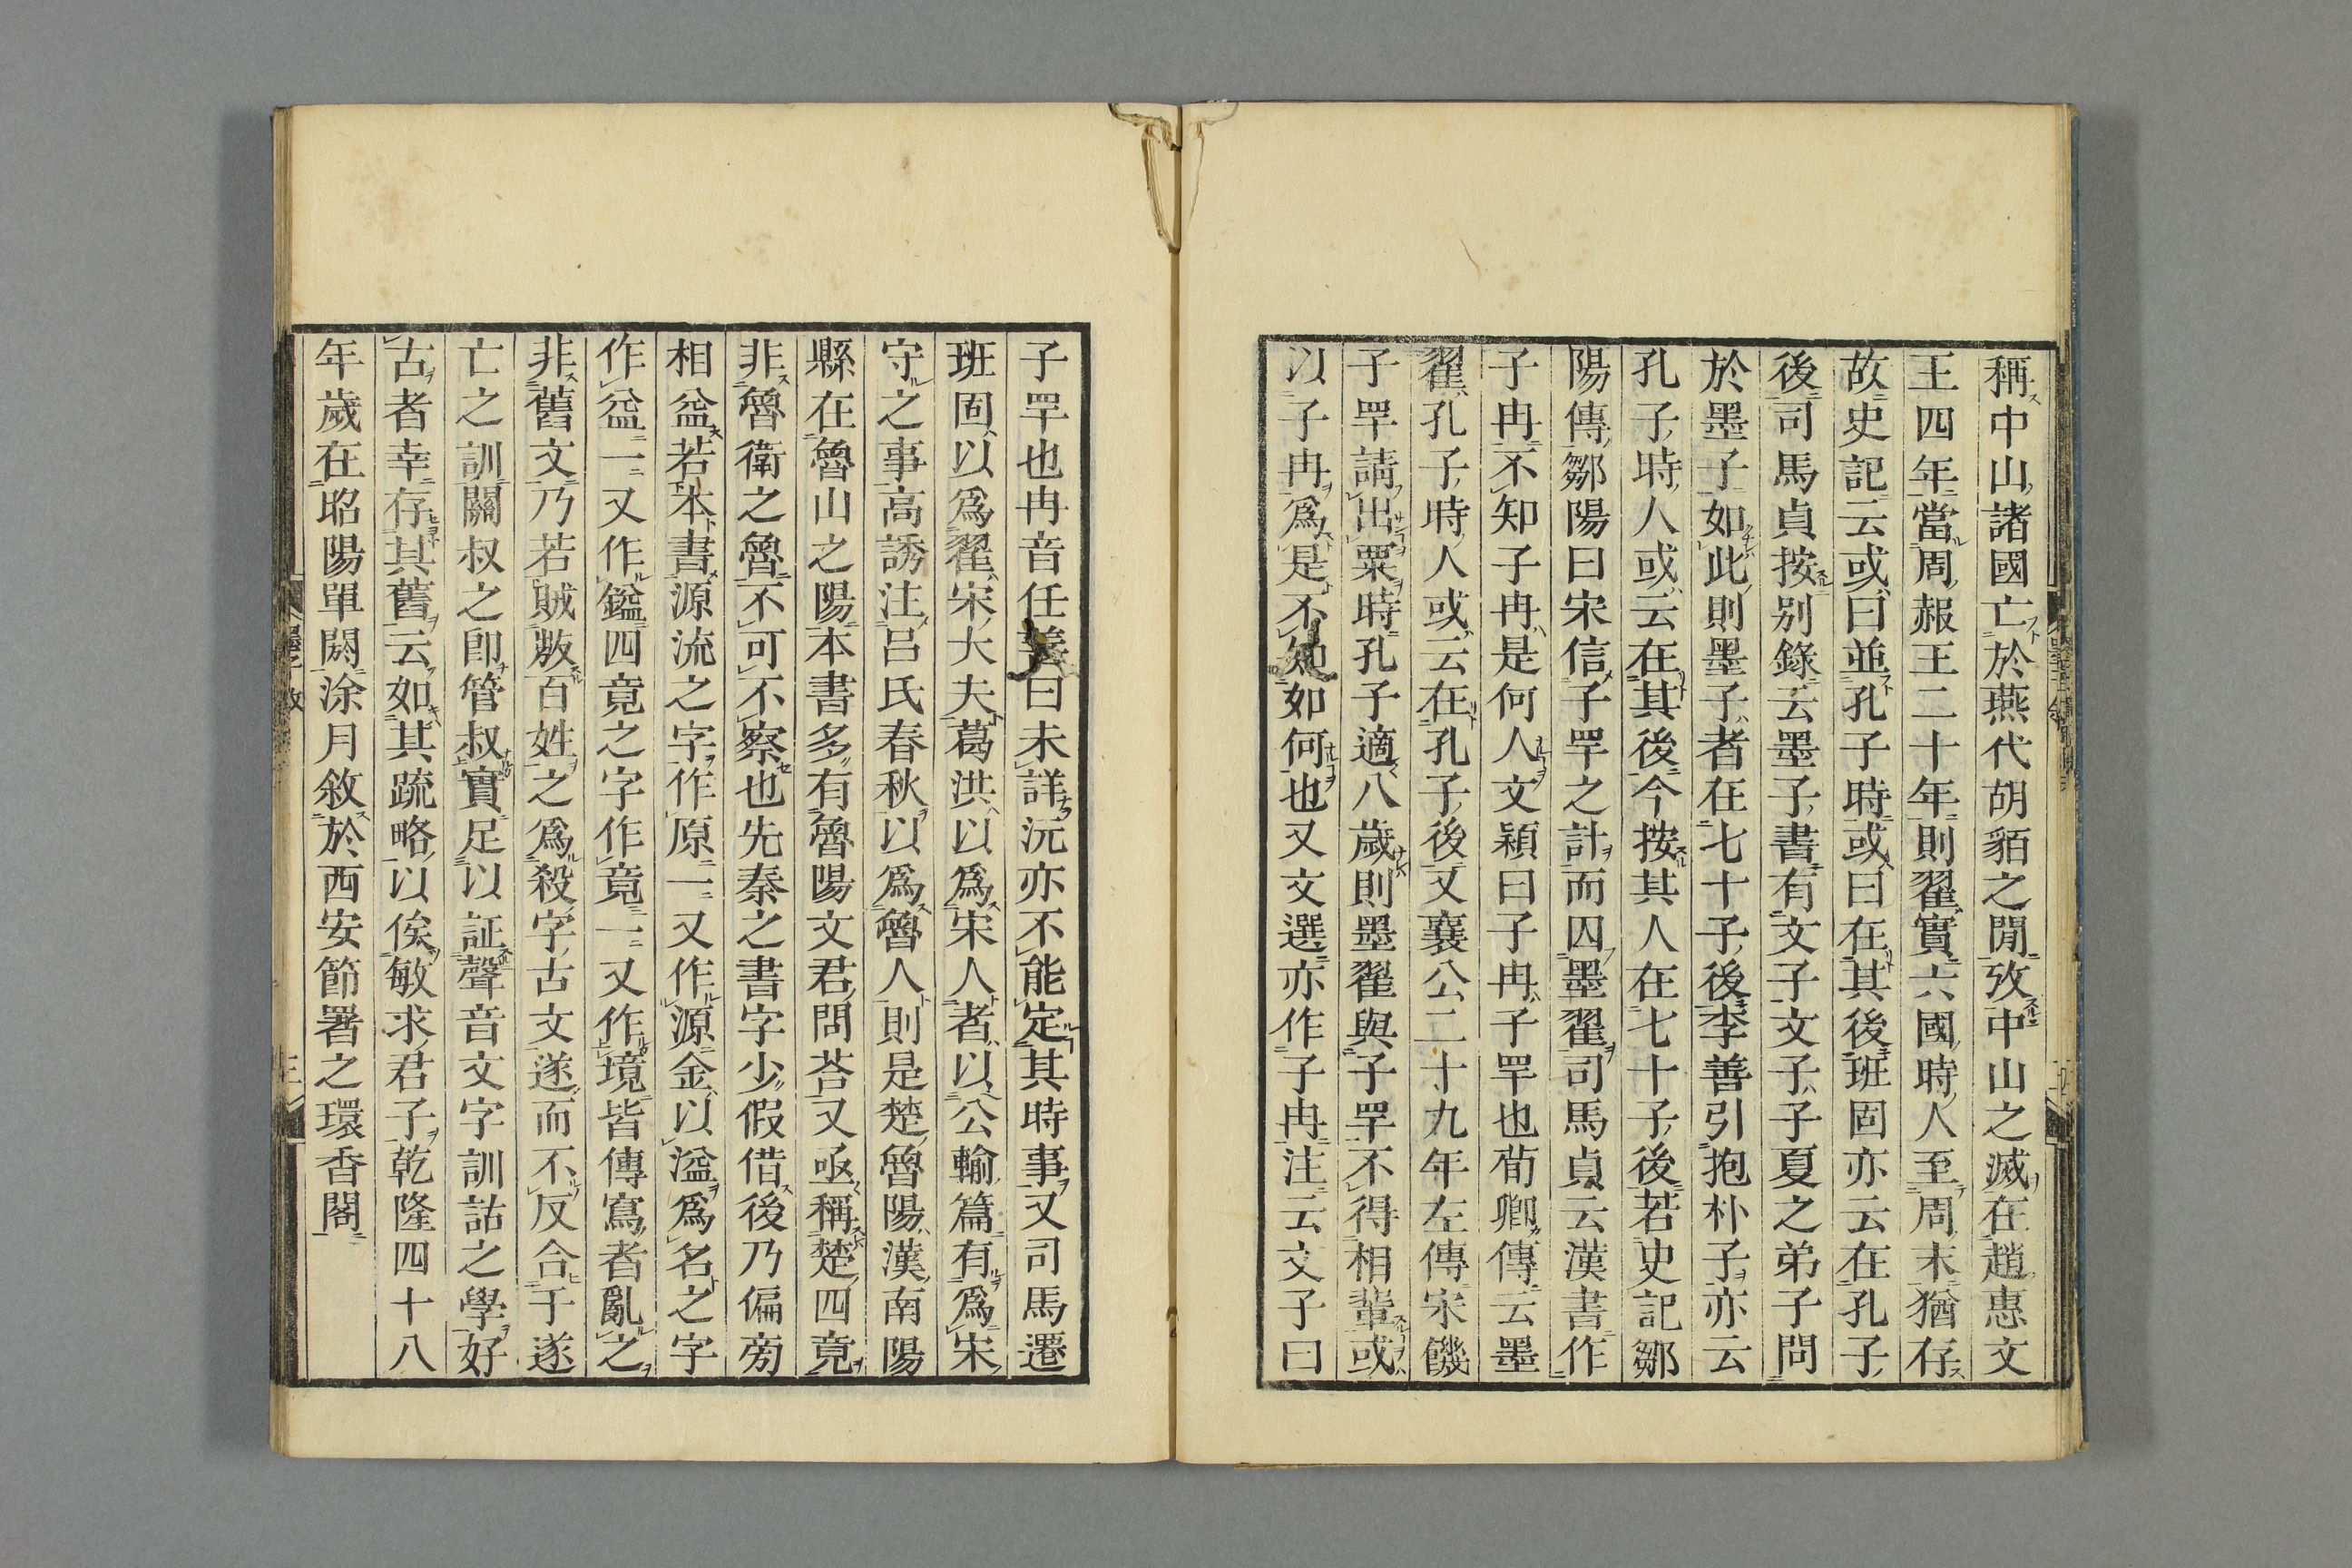 稱中山諸國亡於燕代胡貊之閒攷中山之滅在趙惠文
王四年當周赧王二十年則翟實六國時人至周末猶存
故史記云或曰並孔子時或曰在其後班固亦云在孔子
後司馬貞按别錄云墨子書有文子文子子夏之弟子問
於墨子如此則墨子者在七十子後李善引抱朴子亦云
孔子時人或云在其後今按其人在七十子後若史記鄒
陽傳鄒陽曰宋信子罕之計而囚墨翟司馬貞云漢書作
子冉不知子冉是何人文穎曰子冉子罕也荀卿傳云墨
翟孔子時人或云在孔子後又襄公二十九年左傳宋饑
子罕請出粟時孔子適八歲則墨翟與子罕不得相輩或
以子冉爲是不知如何也又文選亦作子冉注云文子曰
子罕也冉音任善曰未詳沅亦不能定其時事又司馬遷
班固以爲翟宋大夫葛洪以爲宋人者以公輸篇有爲宋
守之事高誘注呂氏春秋以爲魯人則是楚魯陽漢南陽
縣在魯山之陽本書多有魯陽文君問荅又亟稱楚四竟
非魯衛之魯不可不察也先秦之書字少假借後乃偏旁
相益若本書源流之字作原一又作源金以溢爲名之字
作益一又作鎰四竟之字作竟一又作境皆傳寫者亂之
非舊文乃若賊㪚百姓之爲殺字古文遂而不反合于遂
亡之訓關叔之卽管叔實足以証聲音文字訓詁之學好
古者幸存其舊云如其疏略以俟敏求君子乾隆四十八
年歲在昭陽單閼涂月敘於西安節署之環香閣